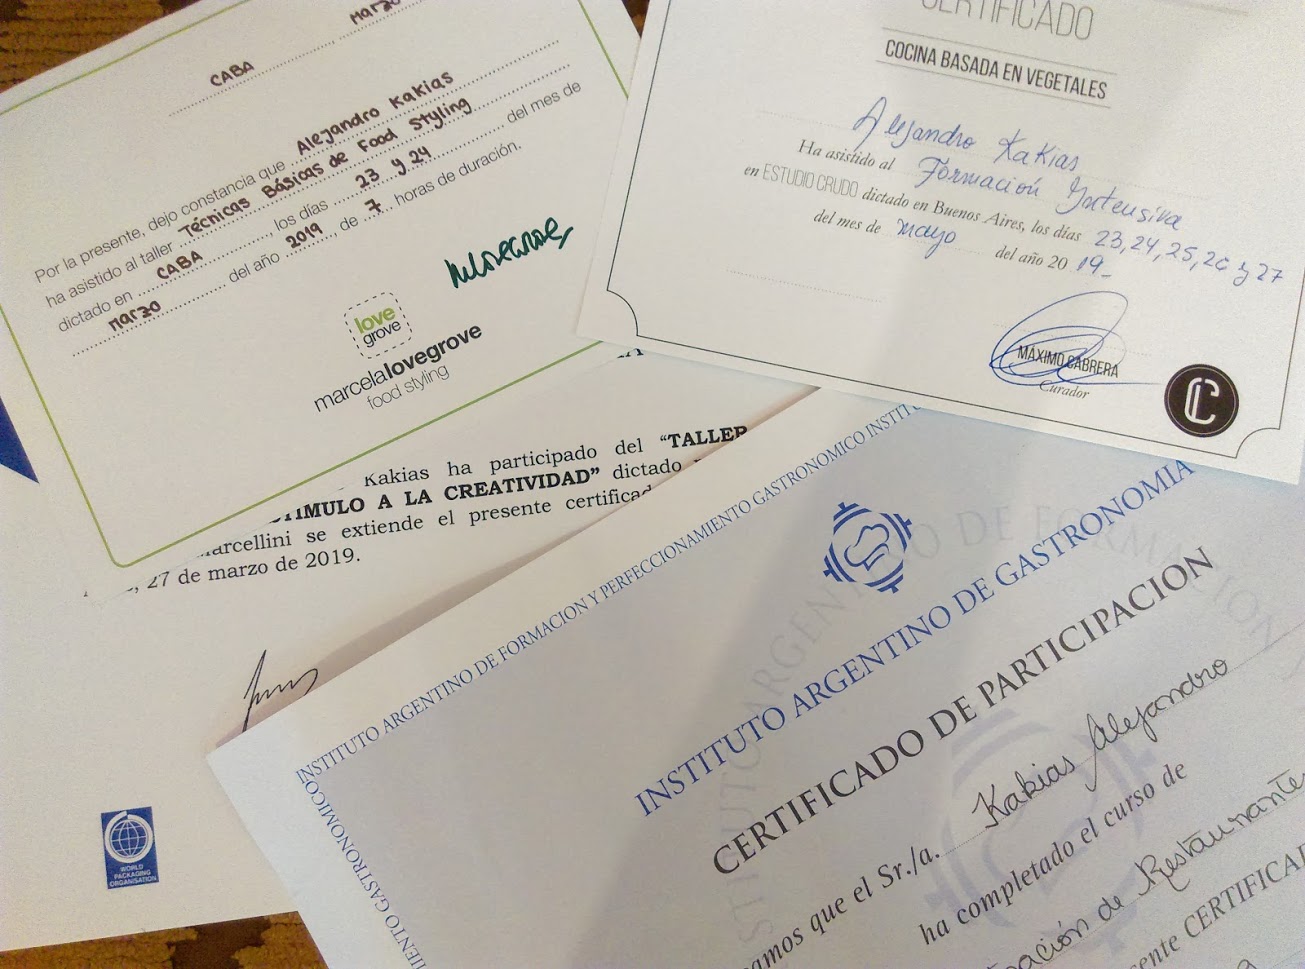 CABA
marzo
Por la presente, dejo constancia que Alejandro Kakias
ha asistido al taller Técnicas Básicas de Food Styling
dictado en CABA los días 23 y 24 del mes de
marzo del año 2019 de 7 horas de duración.
love
grove
marcelalovegrove
food styling
CERTIFICADO
COCINA BASADA EN VEGETALES
Alejandro Kakias
Ha asistido al Formación Intensiva
en ESTUDIO CRUDO dictado en Buenos Aires, los días 23, 24, 25, 26 y 27
del mes de mayo del año 2019_
MÁXIMO CABRERA
Curador
Kakias ha participado del "TALLER
TIMULO A LA CREATIVIDAD" dictado
arcellini se extiende el presente certificad
, 27 de marzo de 2019.
WORLD
PACKAGING
ORGANISATION
INSTITUTO ARGENTINO DE FORMACION Y PERFECCIONAMIENTO GASTRONOMICO INSTITU
MIENTO GASTRONOMICO
INSTITUTO ARGENTINO DE FORMACION
INSTITUTO ARGENTINO DE GASTRONOMIA
CERTIFICADO DE PARTICIPACION
amos que el Sr./a. Kakias Alejandro
ha completado el curso de
ación de Restaurante
sente CERTIFICA